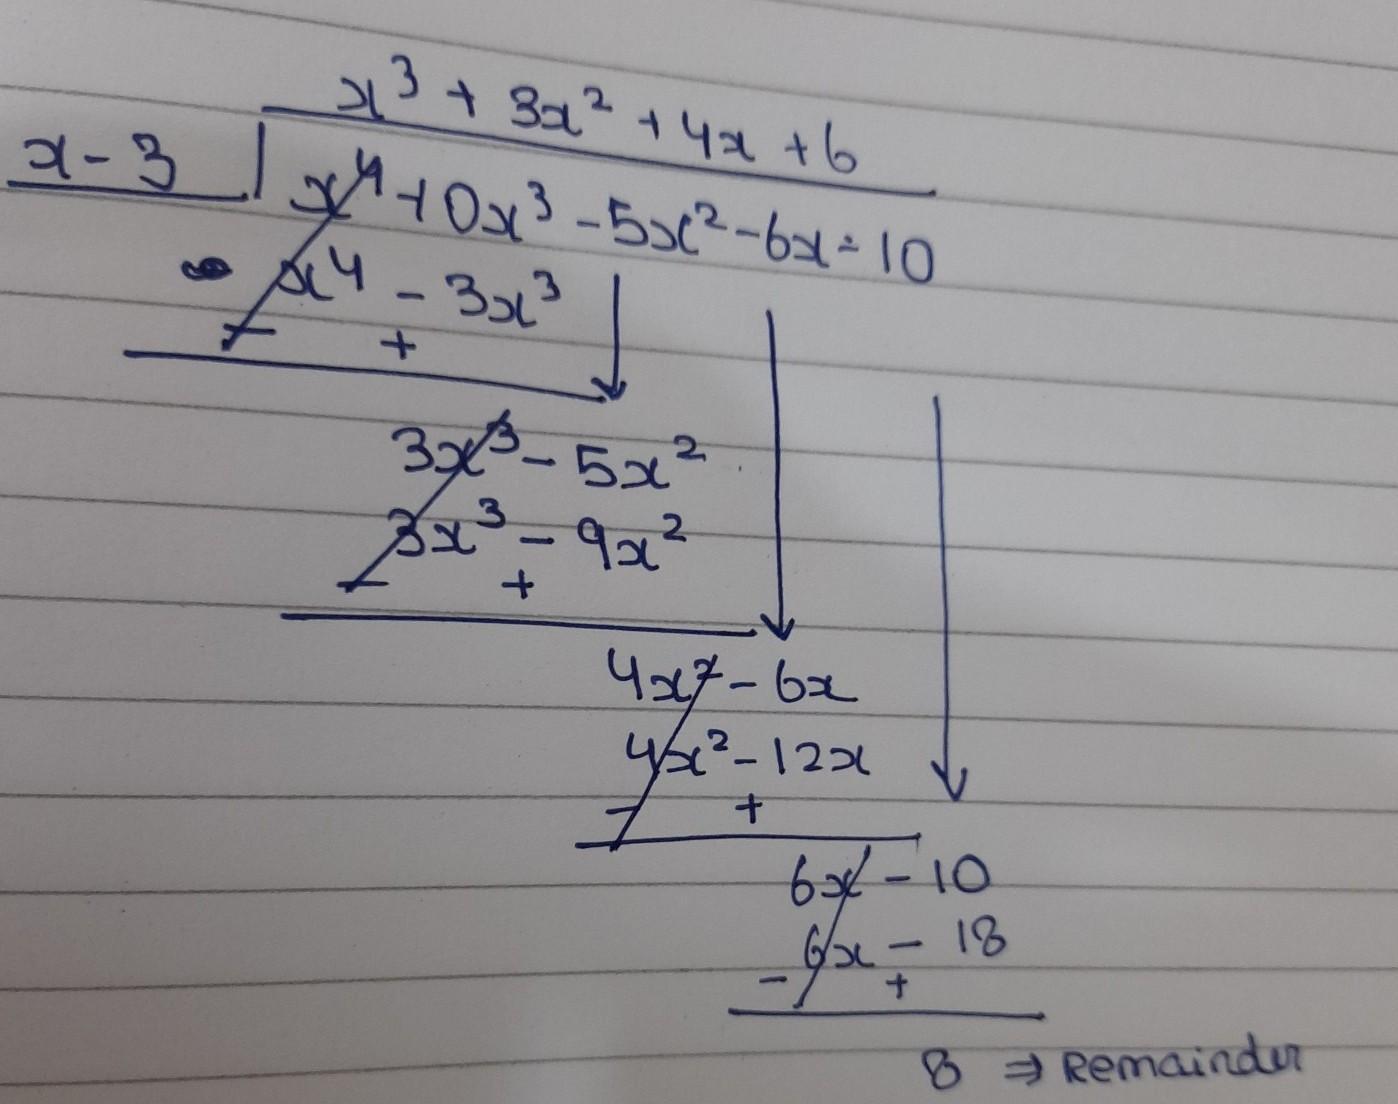 x³ + 3x² + 4x + 6
x - 3 | x⁴ + 0x³ - 5x² - 6x - 10
x⁴ - 3x³
- +
3x³ - 5x²
3x³ - 9x²
- +
4x² - 6x
4x² - 12x
- +
6x - 10
6x - 18
- +
8 ⇒ Remainder